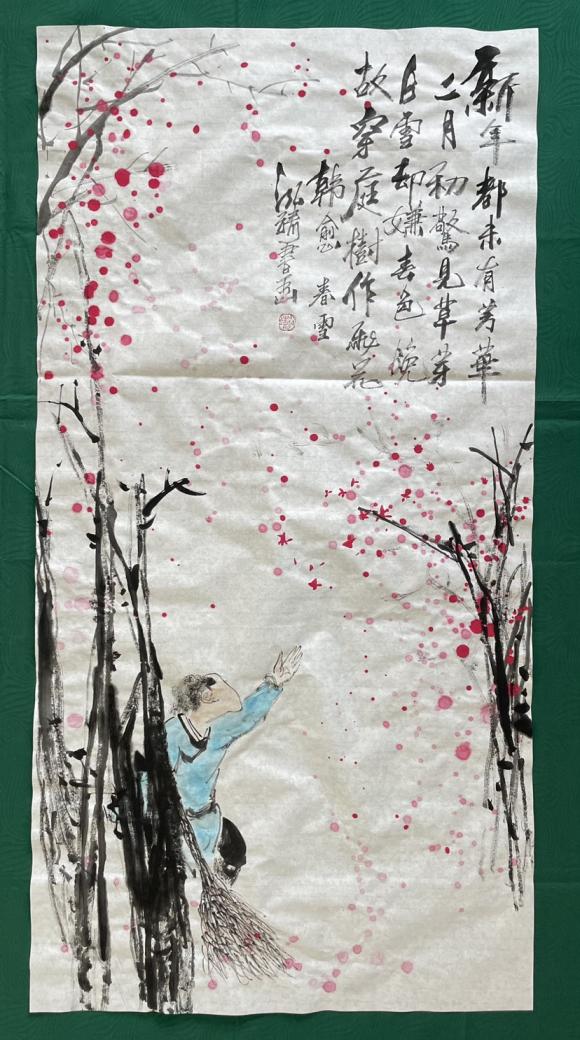 新年都未有芳華
二月初驚見草芽
白雪却嫌春色晚
故穿庭樹作飛花
韓愈 春雪